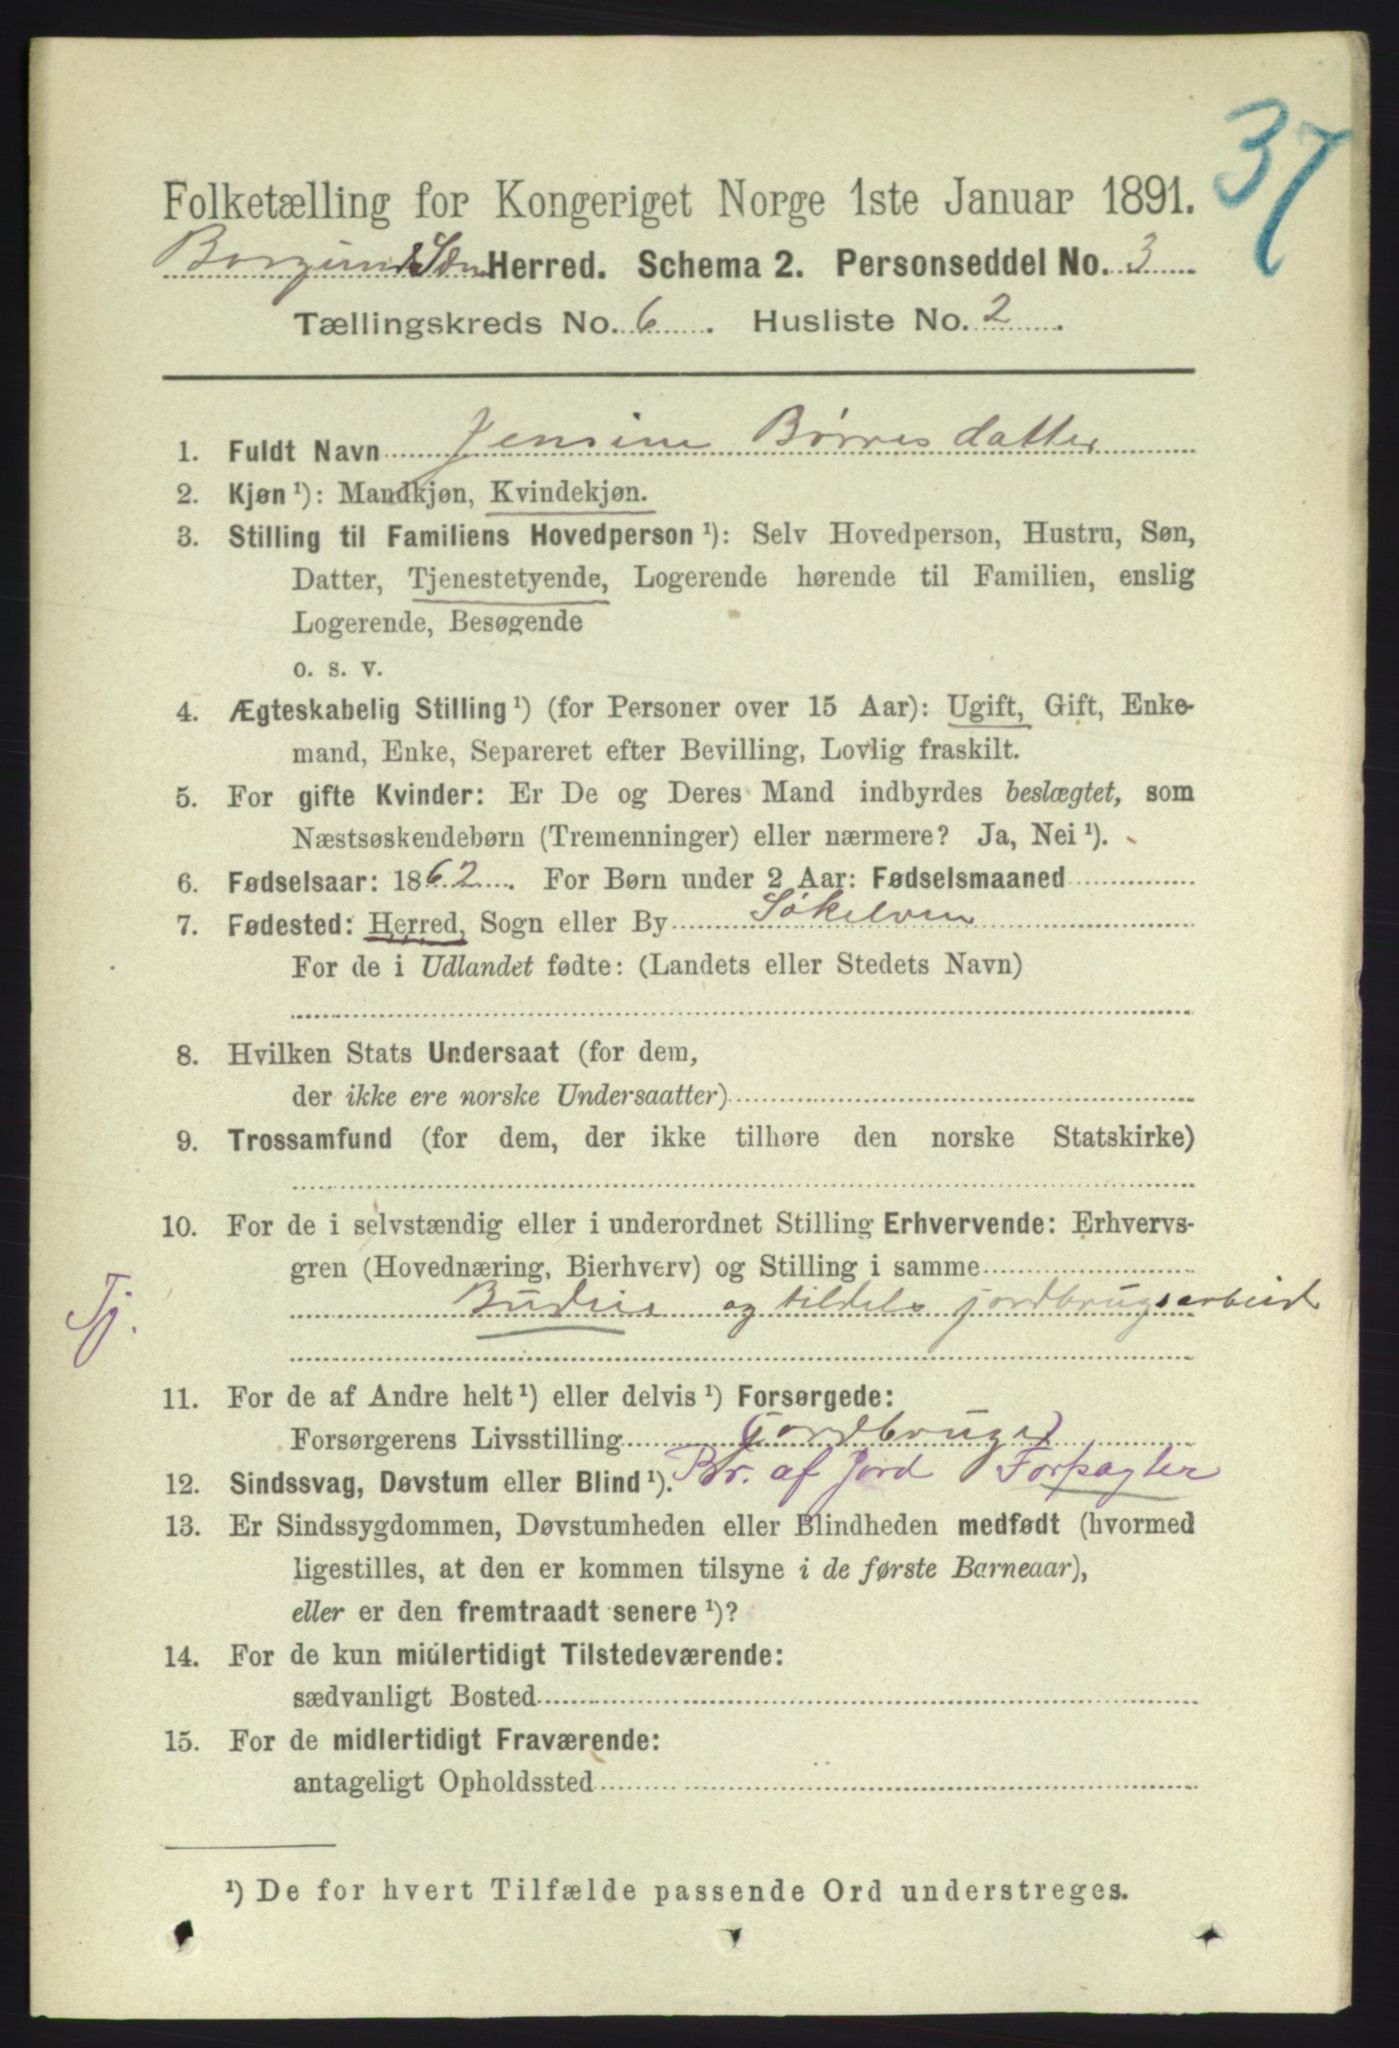 37
Folketælling for Kongeriget Norge 1ste Januar 1891.
Borgund Herred. Schema 2. Personseddel No. 3
Tællingskreds No. 6. Husliste No. 2.
1. Fuldt Navn Jensine Børresdatter
2. Kjøn ¹): Mandkjøn, Kvindekjøn.
3. Stilling til Familiens Hovedperson ¹): Selv Hovedperson, Hustru, Søn,
Datter, Tjenestetyende, Logerende hørende til Familien, enslig
Logerende, Besøgende
o. s. v.
4. Ægteskabelig Stilling ¹) (for Personer over 15 Aar): Ugift, Gift, Enke-
mand, Enke, Separeret efter Bevilling, Lovlig fraskilt.
5. For gifte Kvinder: Er De og Deres Mand indbyrdes beslægtet, som
Næstsøskendebørn (Tremenninger) eller nærmere? Ja, Nei ¹).
6. Fødselsaar: 1862. For Børn under 2 Aar: Fødselsmaaned
7. Fødested: Herred, Sogn eller By Søkelven
For de i Udlandet fødte: (Landets eller Stedets Navn)
8. Hvilken Stats Undersaat (for dem,
der ikke ere norske Undersaatter)
9. Trossamfund (for dem, der ikke tilhøre den norske Statskirke)
10. For de i selvstændig eller i underordnet Stilling Erhvervende: Erhvervs-
gren (Hovednæring, Bierhverv) og Stilling i samme
Tj. Budeie og tildels jordbrugsarbeid
11. For de af Andre helt ¹) eller delvis ¹) Forsørgede:
Forsørgerens Livsstilling (jordbruger)
12. Sindssvag, Døvstum eller Blind ¹). Br. af Jord Forpagter
13. Er Sindssygdommen, Døvstumheden eller Blindheden medfødt (hvormed
ligestilles, at den er kommen tilsyne i de første Barneaar),
eller er den fremtraadt senere ¹)?
14. For de kun midlertidigt Tilstedeværende:
sædvanligt Bosted
15. For de midlertidigt Fraværende:
antageligt Opholdssted
¹) De for hvert Tilfælde passende Ord understreges.